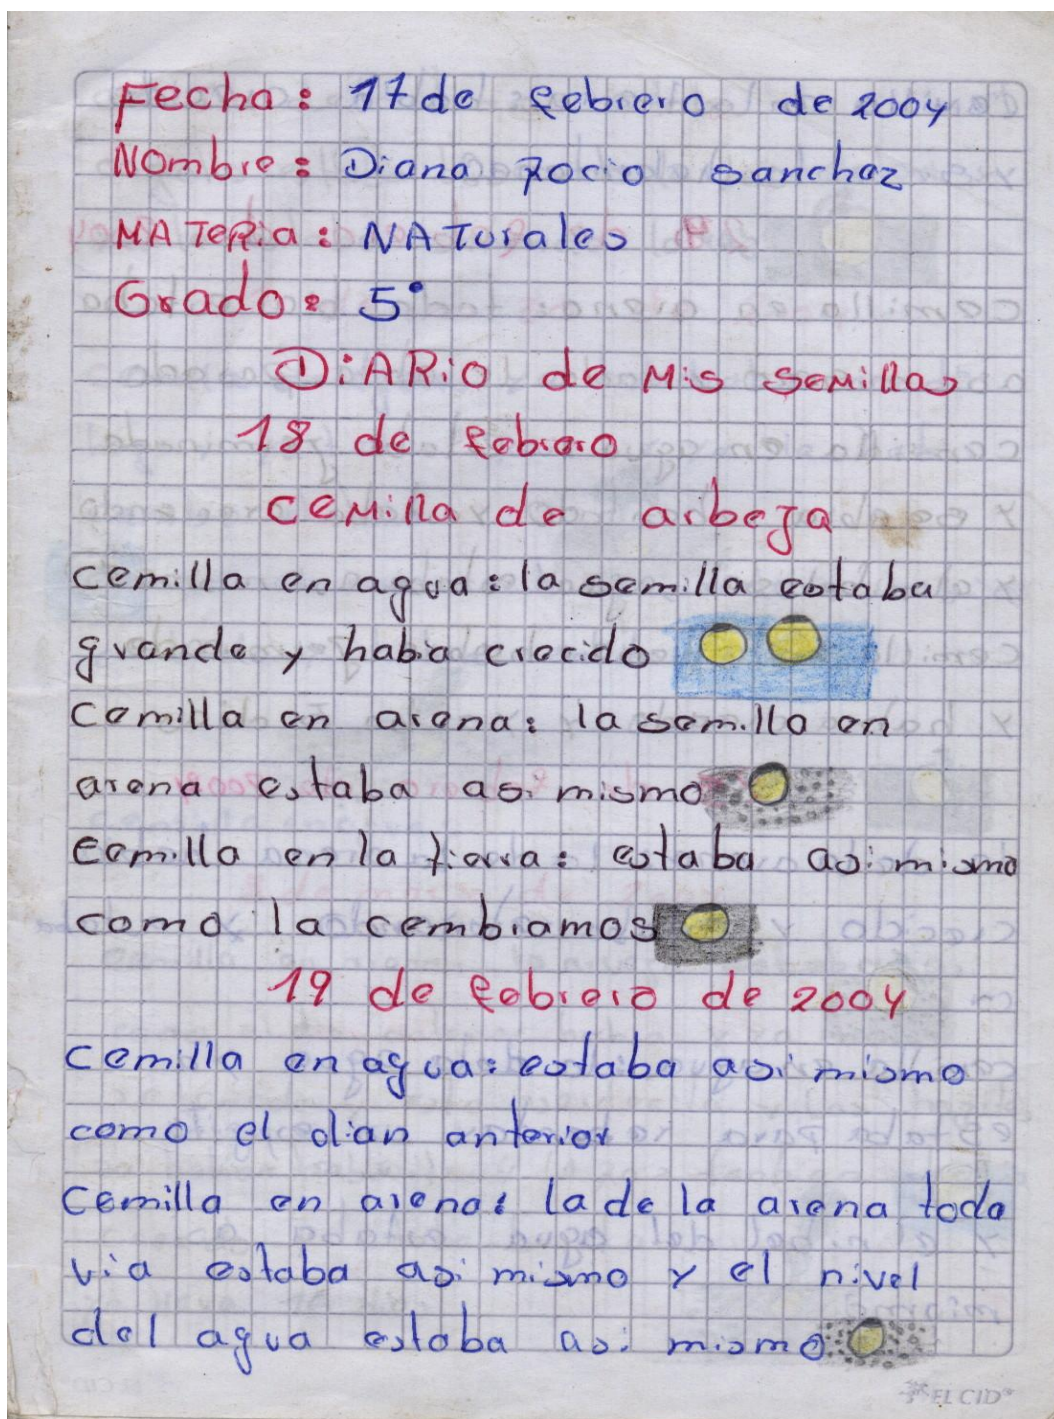 Fecha: 17 de febrero de 2004
Nombre: Diana Rocio Sanchez
MATeRia: NATurales
Grado: 5°
DiARio de Mis semillas
18 de febrero
cemilla de arbeja
cemilla en agua: la semilla estaba
grande y habia crecido
cemilla en arena: la semilla en
arena estaba asi mismo
cemilla en la tierra: estaba asi mismo
como la cembramos
19 de febrero de 2004
cemilla en agua: estaba asi mismo
como el dian anterior
cemilla en arena: la de la arena toda
via estaba asi mismo y el nivel
del agua estaba asi mismo
EL CID